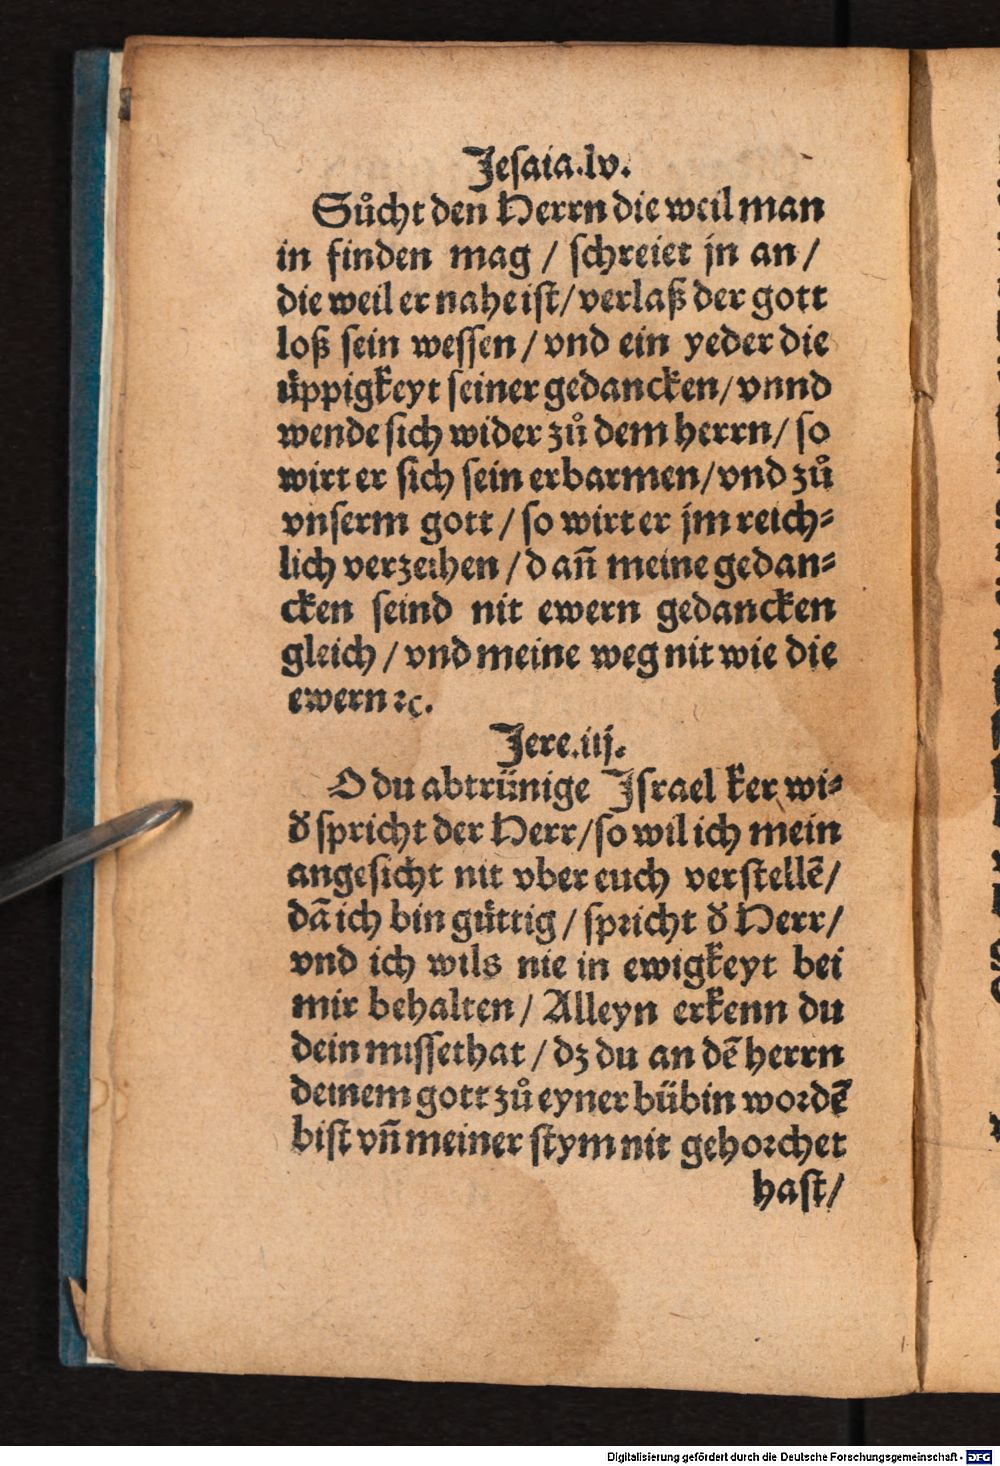 Jeſaia.lv.
Sůcht den Herrn die weil man
in finden mag / ſchreiet jn an /
die weil er nahe iſt / verlaß der gott
loß ſein weſſen / vnd ein yeder die
üppigkeyt ſeiner gedancken / vnnd
wende ſich wider zů dem herrn / ſo
wirt er ſich ſein erbarmen / vnd zů
vnſerm gott / ſo wirt er jm reich⸗
lich verzeihen / dañ meine gedan⸗
cken ſeind nit ewern gedancken
gleich / vnd meine weg nit wie die
ewern ⁊c.
Jere.iij.
O du abtrünige Jſrael ker wi⸗
đ ſpricht der Herr / ſo wil ich mein
angeſicht nit vber euch verſtellē /
dā ich bin güttig / ſpricht đ Herr /
vnd ich wils nie in ewigkeyt bei
mir behalten / Alleyn erkenn du
dein miſſethat / dz du an dē herrn
deinem gott zů eyner bübin wordē
biſt vñ meiner ſtym nit gehorchet
haſt /
Digitalisierung gefördert durch die Deutsche Forschungsgemeinschaft - DFG